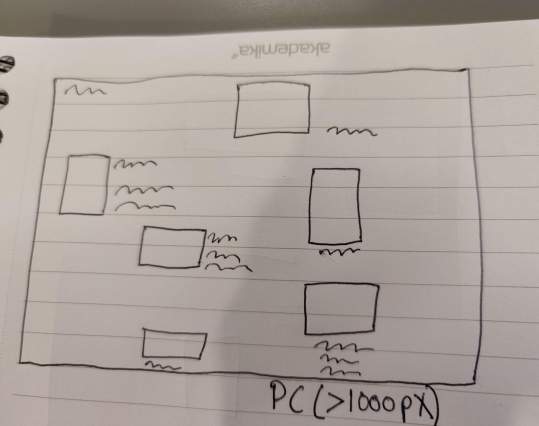 akademika®
PC (>1000px)